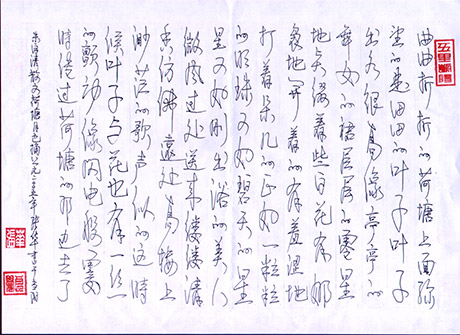 曲曲折折的荷塘上面弥
望的是田田的叶子叶子
出水很高像亭亭的
舞女的裙层层的零星
地点缀着些白花有娜
袅地开着的有羞涩地
打着朵儿的正如一粒粒
的明珠又如碧天的星
星又如刚出浴的美人
微风过处送来缕缕清
香仿佛远处高楼上
渺茫的歌声似的这时
候叶子与花也有一丝
的颤动像闪电般霎
时传过荷塘的那边去了
朱自清散文荷塘月色摘